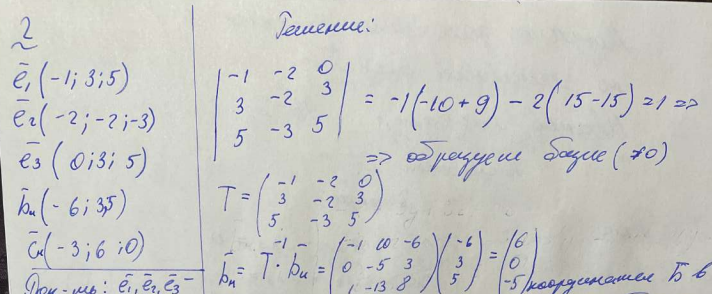 2
ē₁(-1; 3; 5)
ē₂(-2; -2; -3)
ē₃(0; 3; 5)
b̄н(-6; 3,5)
c̄н(-3; 6; 0)
Док-ть: ē₁, ē₂, ē₃ -
Решение:
| -1 -2 0 |
| 3 -2 3 | = -1(-10+9) - 2(15-15) = 1 =>
| 5 -3 5 |
=> образуем базис (≠0)
T = ( -1 -2 0
3 -2 3
5 -3 5 )
b̄н = T⁻¹ · b̄н = ( -1 10 -6
0 -5 3
1 -13 8 ) ( -6
3
5 ) = ( 6
0
-5 ) координаты b̄ в